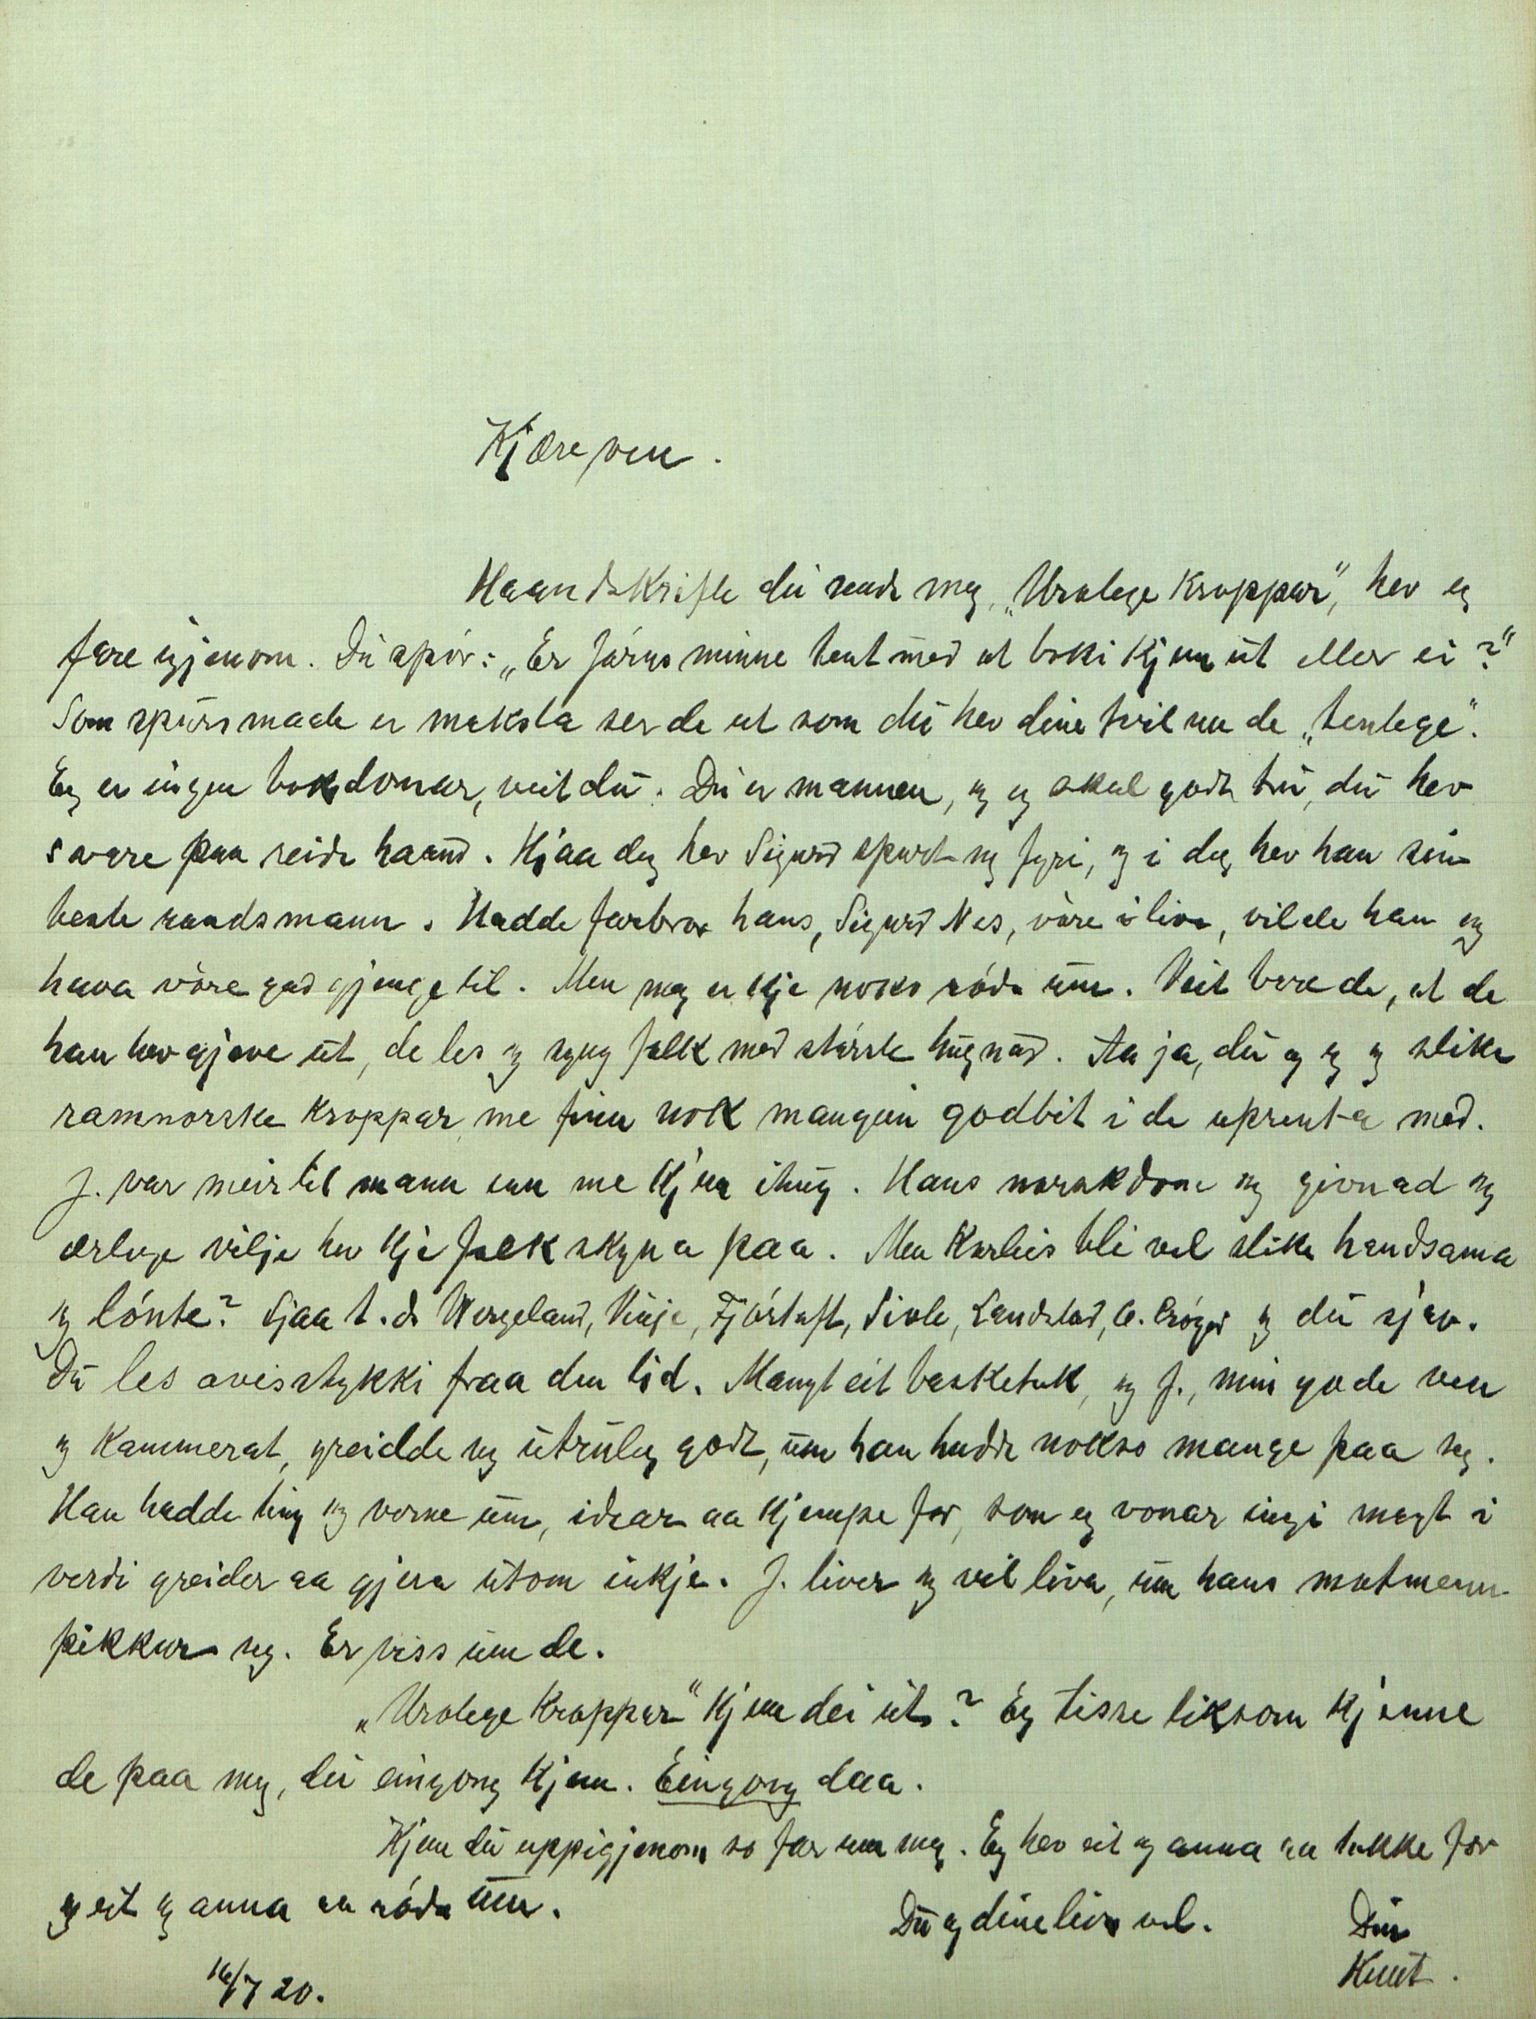 Kjære ven.
Haandskrifte du sende meg, „Urolege Kroppar", hev eg
fare igjenom. Du spør: „Er Jørns minne tent med at boki kjem ut eller ei?"
Som spursmaale er maksla ser de ut som du hev dine tvil um de „tenlege".
Eg er ingen bokdomar, veit du. Du er mannen, og eg skal godt tru, du hev
svare paa reide haand. Hjaa deg hev Sigurd spurt seg fyri, og i deg hev han sin
beste raadsmann. Hadde farbror hans, Sigurd Nes, vore i live, vilde han og
hava vore god gjenge til. Men meg er kje noko røda um. Veit bere de, at de
han hev gjeve ut, de les og syng folk med største hugnad. Aa ja, du og eg og slike
ramnorske kroppar, me finn nok mangein godbit i de uprenta med.
J. var meir til mann enn me kjem ihug. Hans norskdom og givnad og
ærlege vilje hev kje folk skyna paa. Men korleis bli vel slike handsama
og lønte? Sjaa t. d. Wergeland, Vinje, Fjørtoft, Sivle, Landstad, O. Krøger og du sjøv.
Du les avisstykki fraa den tid. Mangt eit basketak, og J., min gode ven
og kammerat, greidde seg utruleg godt, um han hadde nokso mange paa seg.
Han hadde ting og verne um, idear aa kjempe for, som eg vonar ingi magt i
verdi greider aa gjera utom inkje. J. liver og vil liva, um hans motmenn
pikkar seg. Er viss um de.
„Urolege Kroppar" kjem dei ut? Eg tisse liksom kjenne
de paa meg, dei eingong kjem. Eingong daa.
Kjem du uppigjenom so far um meg. Eg hev eit og anna aa takke for
og eit og anna aa røda um.
Du og dine liva vel. Din
Knut.
16/7 20.